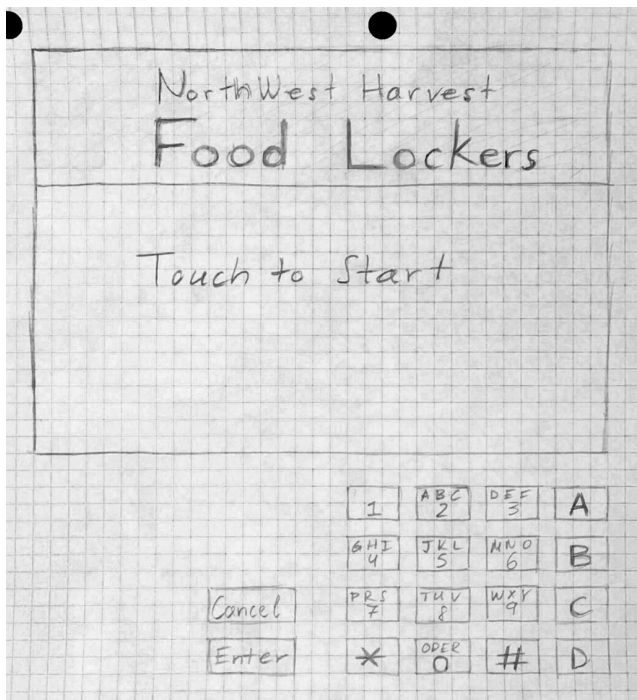 NorthWest Harvest
Food Lockers
Touch to Start
1 ABC DEF A
2 3
GHI JKL MNO B
4 5 6
Cancel PRS TUV WXY C
7 8 9
Enter * OPER # D
0